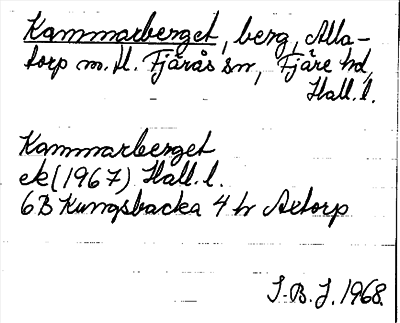 Kammarberget, berg, Alla-
torp m. fl. Fjärås sn, Fjäre hd,
Hall. l.
Kammarberget
ek (1967) Hall. l.
6B Kungsbacka 4 h Axtorp
S.B.J. 1968.